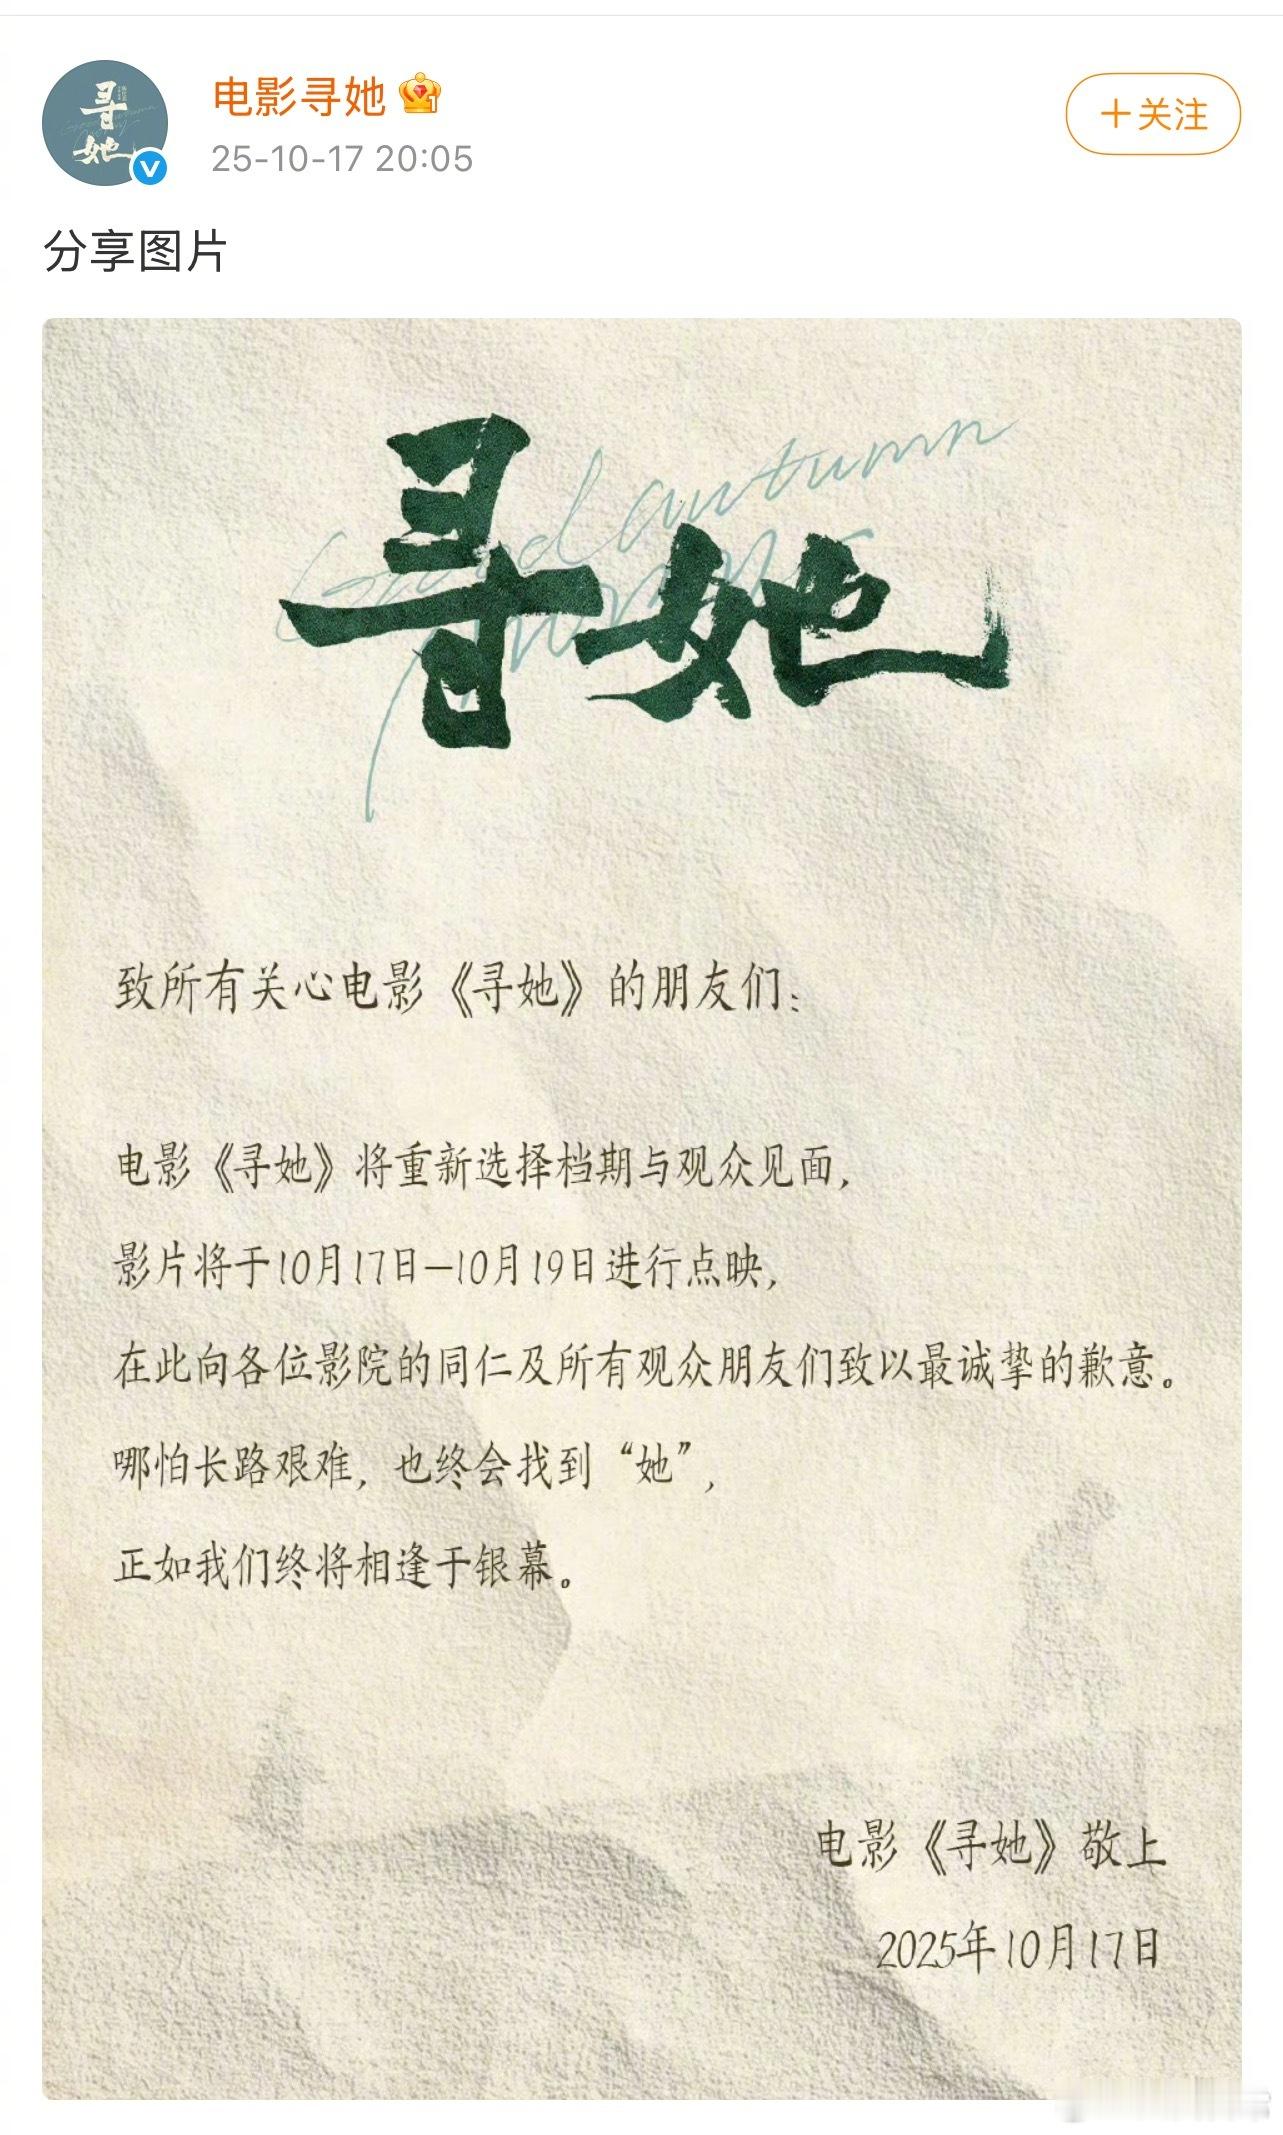 电影寻她
25-10-17 20:05
+关注
分享图片
Grand autumn
寻她
致所有关心电影《寻她》的朋友们：
电影《寻她》将重新选择档期与观众见面，
影片将于10月17日—10月19日进行点映，
在此向各位影院的同仁及所有观众朋友们致以最诚挚的歉意。
哪怕长路艰难，也终会找到“她”，
正如我们终将相逢于银幕。
电影《寻她》敬上
2025年10月17日